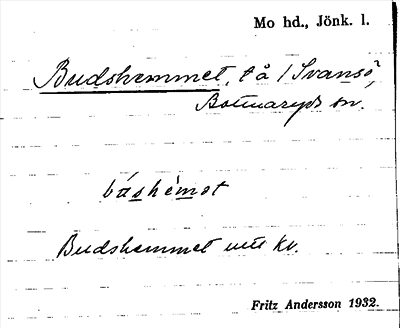 Mo hd., Jönk. l.
Budshemmet, t å / Svansö,
Bottnaryds sn.
båshemet
Budshemmet utt kv.
Fritz Andersson 1932.